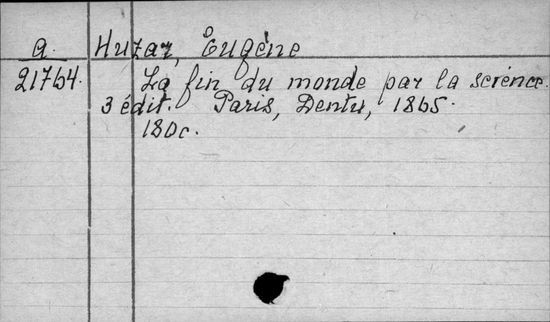 a. Huzar, Eugène
21764. La fin du monde par la science.
3 édit. Paris, Dentu, 1865.
18o c.